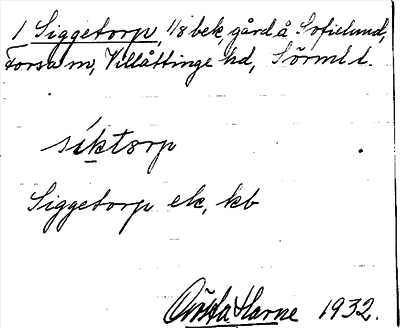 1 Siggetorp, 1/8 bek, gård å Sofielund,
Forsa sn, Villåttinge hd, Sörml l.
siktorp
Siggetorp ek, kb
Harne 1932.